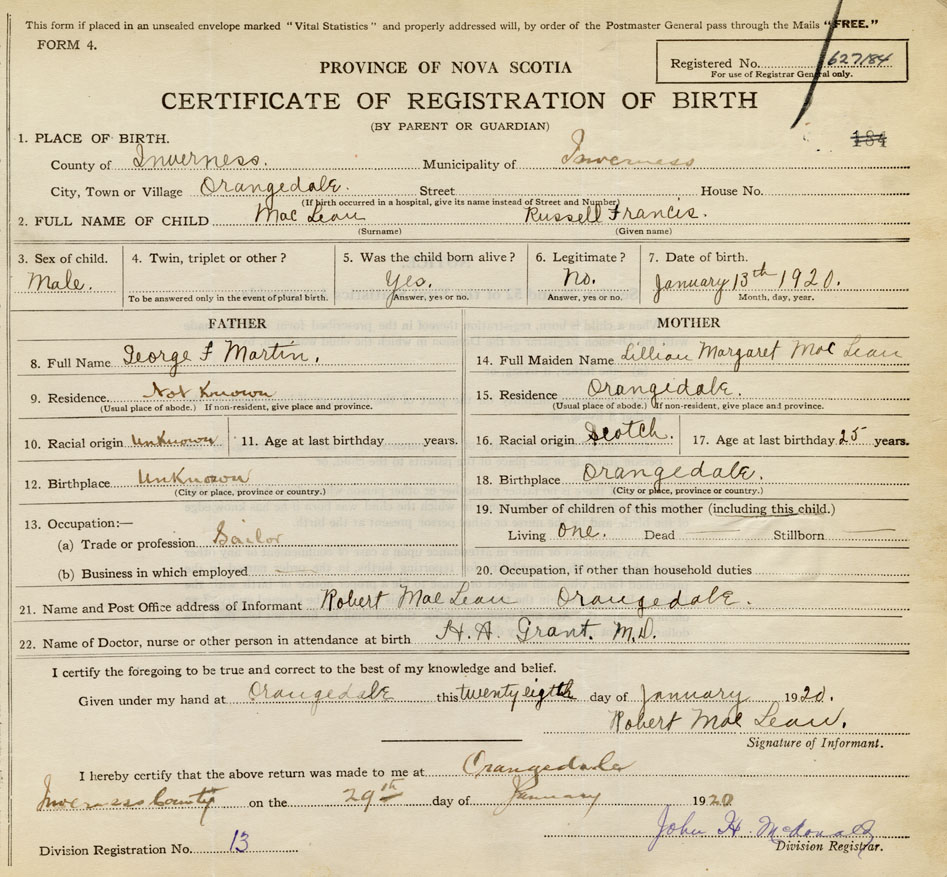 This form if placed in an unsealed envelope marked "Vital Statistics" and properly addressed will, by order of the Postmaster General pass through the Mails "FREE."
FORM 4.
Registered No. 627184
For use of Registrar General only.
PROVINCE OF NOVA SCOTIA
CERTIFICATE OF REGISTRATION OF BIRTH
(BY PARENT OR GUARDIAN)
184
1. PLACE OF BIRTH.
County of Inverness. Municipality of Inverness
City, Town or Village Orangedale. Street House No.
(If birth occurred in a hospital, give its name instead of Street and Number)
2. FULL NAME OF CHILD Mac Lean Russell Francis.
(Surname) (Given name)
3. Sex of child. 4. Twin, triplet or other? 5. Was the child born alive? 6. Legitimate? 7. Date of birth.
Male. Yes. No. January 13th 1920.
To be answered only in the event of plural birth. Answer, yes or no. Answer, yes or no. Month, day, year.
FATHER MOTHER
8. Full Name George F Martin. 14. Full Maiden Name Lillian Margaret Mac Lean
9. Residence Not Known 15. Residence Orangedale.
(Usual place of abode.) If non-resident, give place and province. (Usual place of abode.) If non-resident, give place and province.
10. Racial origin Unknown 11. Age at last birthday years. 16. Racial origin Scotch. 17. Age at last birthday 25 years.
12. Birthplace Unknown 18. Birthplace Orangedale.
(City or place, province or country.) (City or place, province or country.)
13. Occupation:— 19. Number of children of this mother (including this child.)
(a) Trade or profession Sailor Living One. Dead — Stillborn —
(b) Business in which employed 20. Occupation, if other than household duties
21. Name and Post Office address of Informant Robert Mac Lean Orangedale.
22. Name of Doctor, nurse or other person in attendance at birth H. A. Grant. M.D.
I certify the foregoing to be true and correct to the best of my knowledge and belief.
Given under my hand at Orangedale this twenty eigth day of January 1920.
Robert Mac Lean.
Signature of Informant.
I hereby certify that the above return was made to me at Orangedale
Inverness County on the 29th day of January 1920
John H. McDonald
Division Registrar.
Division Registration No. 13